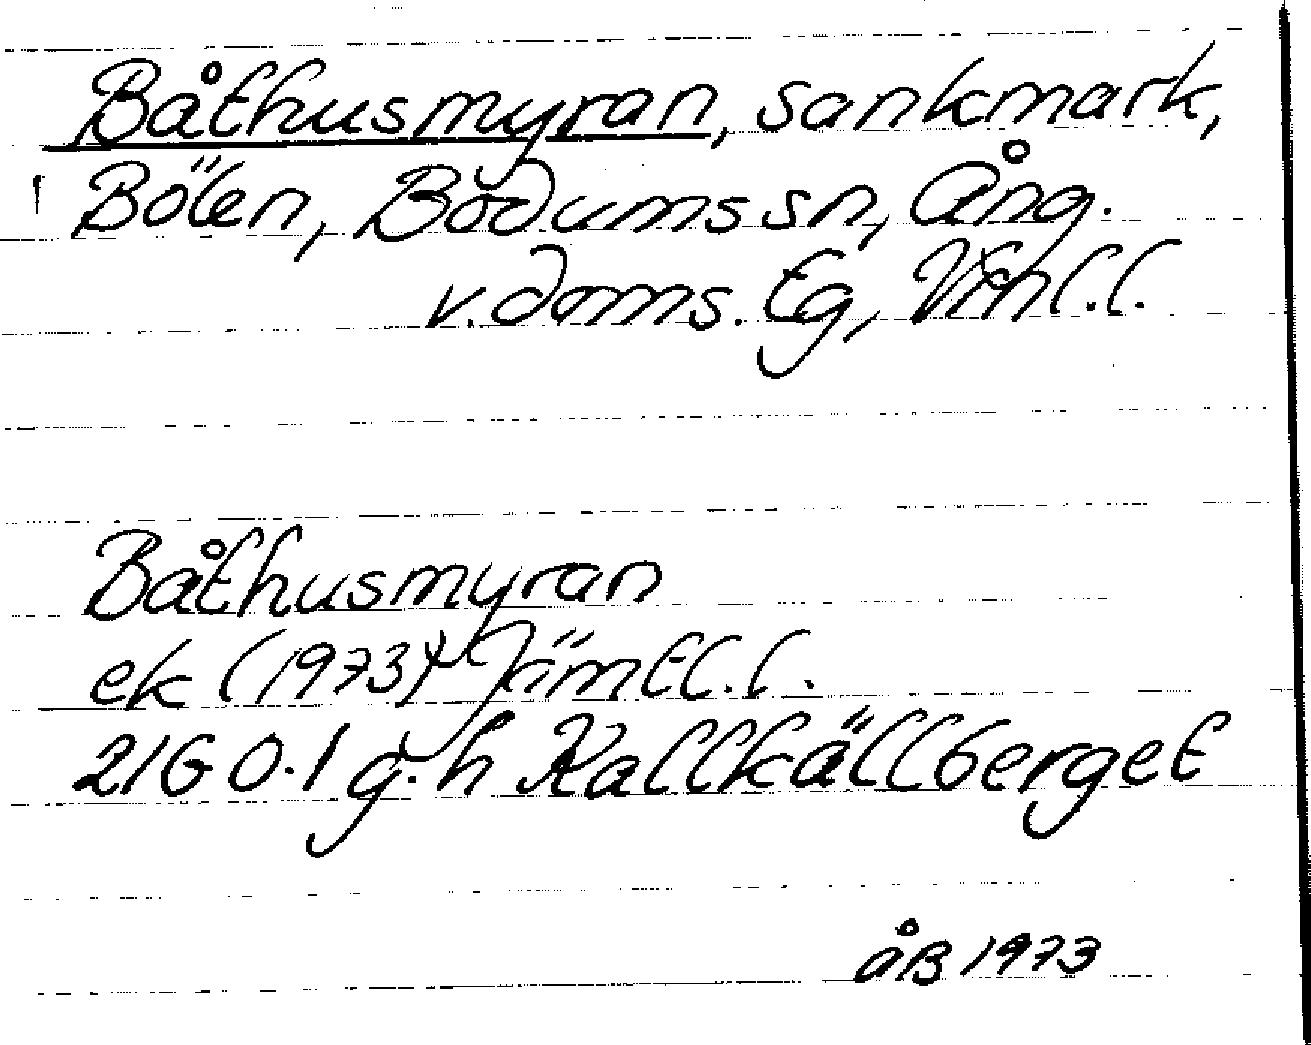 Båthusmyran, sankmark,
Bölen, Bodums sn, Ång.
v. doms. Eg, Vtnl.l.
Båthusmyran
ek (1973) Jämtl.l.
21G 0.1 g.h Kallkällberget
ÅB 1973